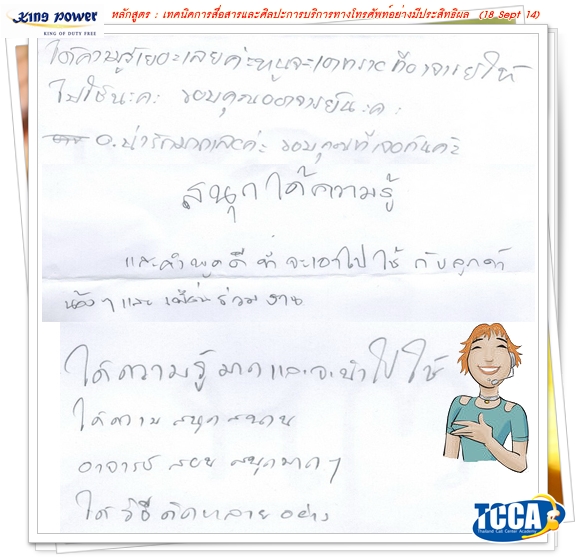 King Power
KING OF DUTY FREE
หลักสูตร : เทคนิคการสื่อสารและศิลปะการบริการทางโทรศัพท์อย่างมีประสิทธิผล (18 Sept 14)
ได้ความรู้เยอะเลยค่ะหนูจะเอา ที่อาจารย์ให้
ไปใช้นะคะ ขอบคุณอาจารย์นะคะ
อ.น่ารักมากเลยค่ะ ขอบคุณที่เจอกันค่ะ
สนุก ได้ความรู้
และคำพูดดี ที่จะเอาไปใช้ กับลูกค้า
น้อง ๆ และ เพื่อนร่วมงาน
ได้ความรู้มากและจะนำไปใช้
ได้ความ สนุกสนาน
อาจารย์ สอน สนุกมาก ๆ
ได้วิธีคิดหลายอย่าง
TCCA
Thailand Call Center Academy